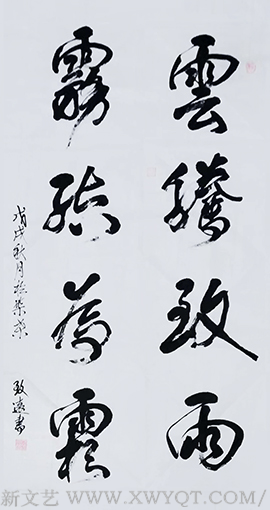 雲騰致雨
露結為霜
戊戌秋月於
致遠書
新文艺／WWW.XWYQT.COM/